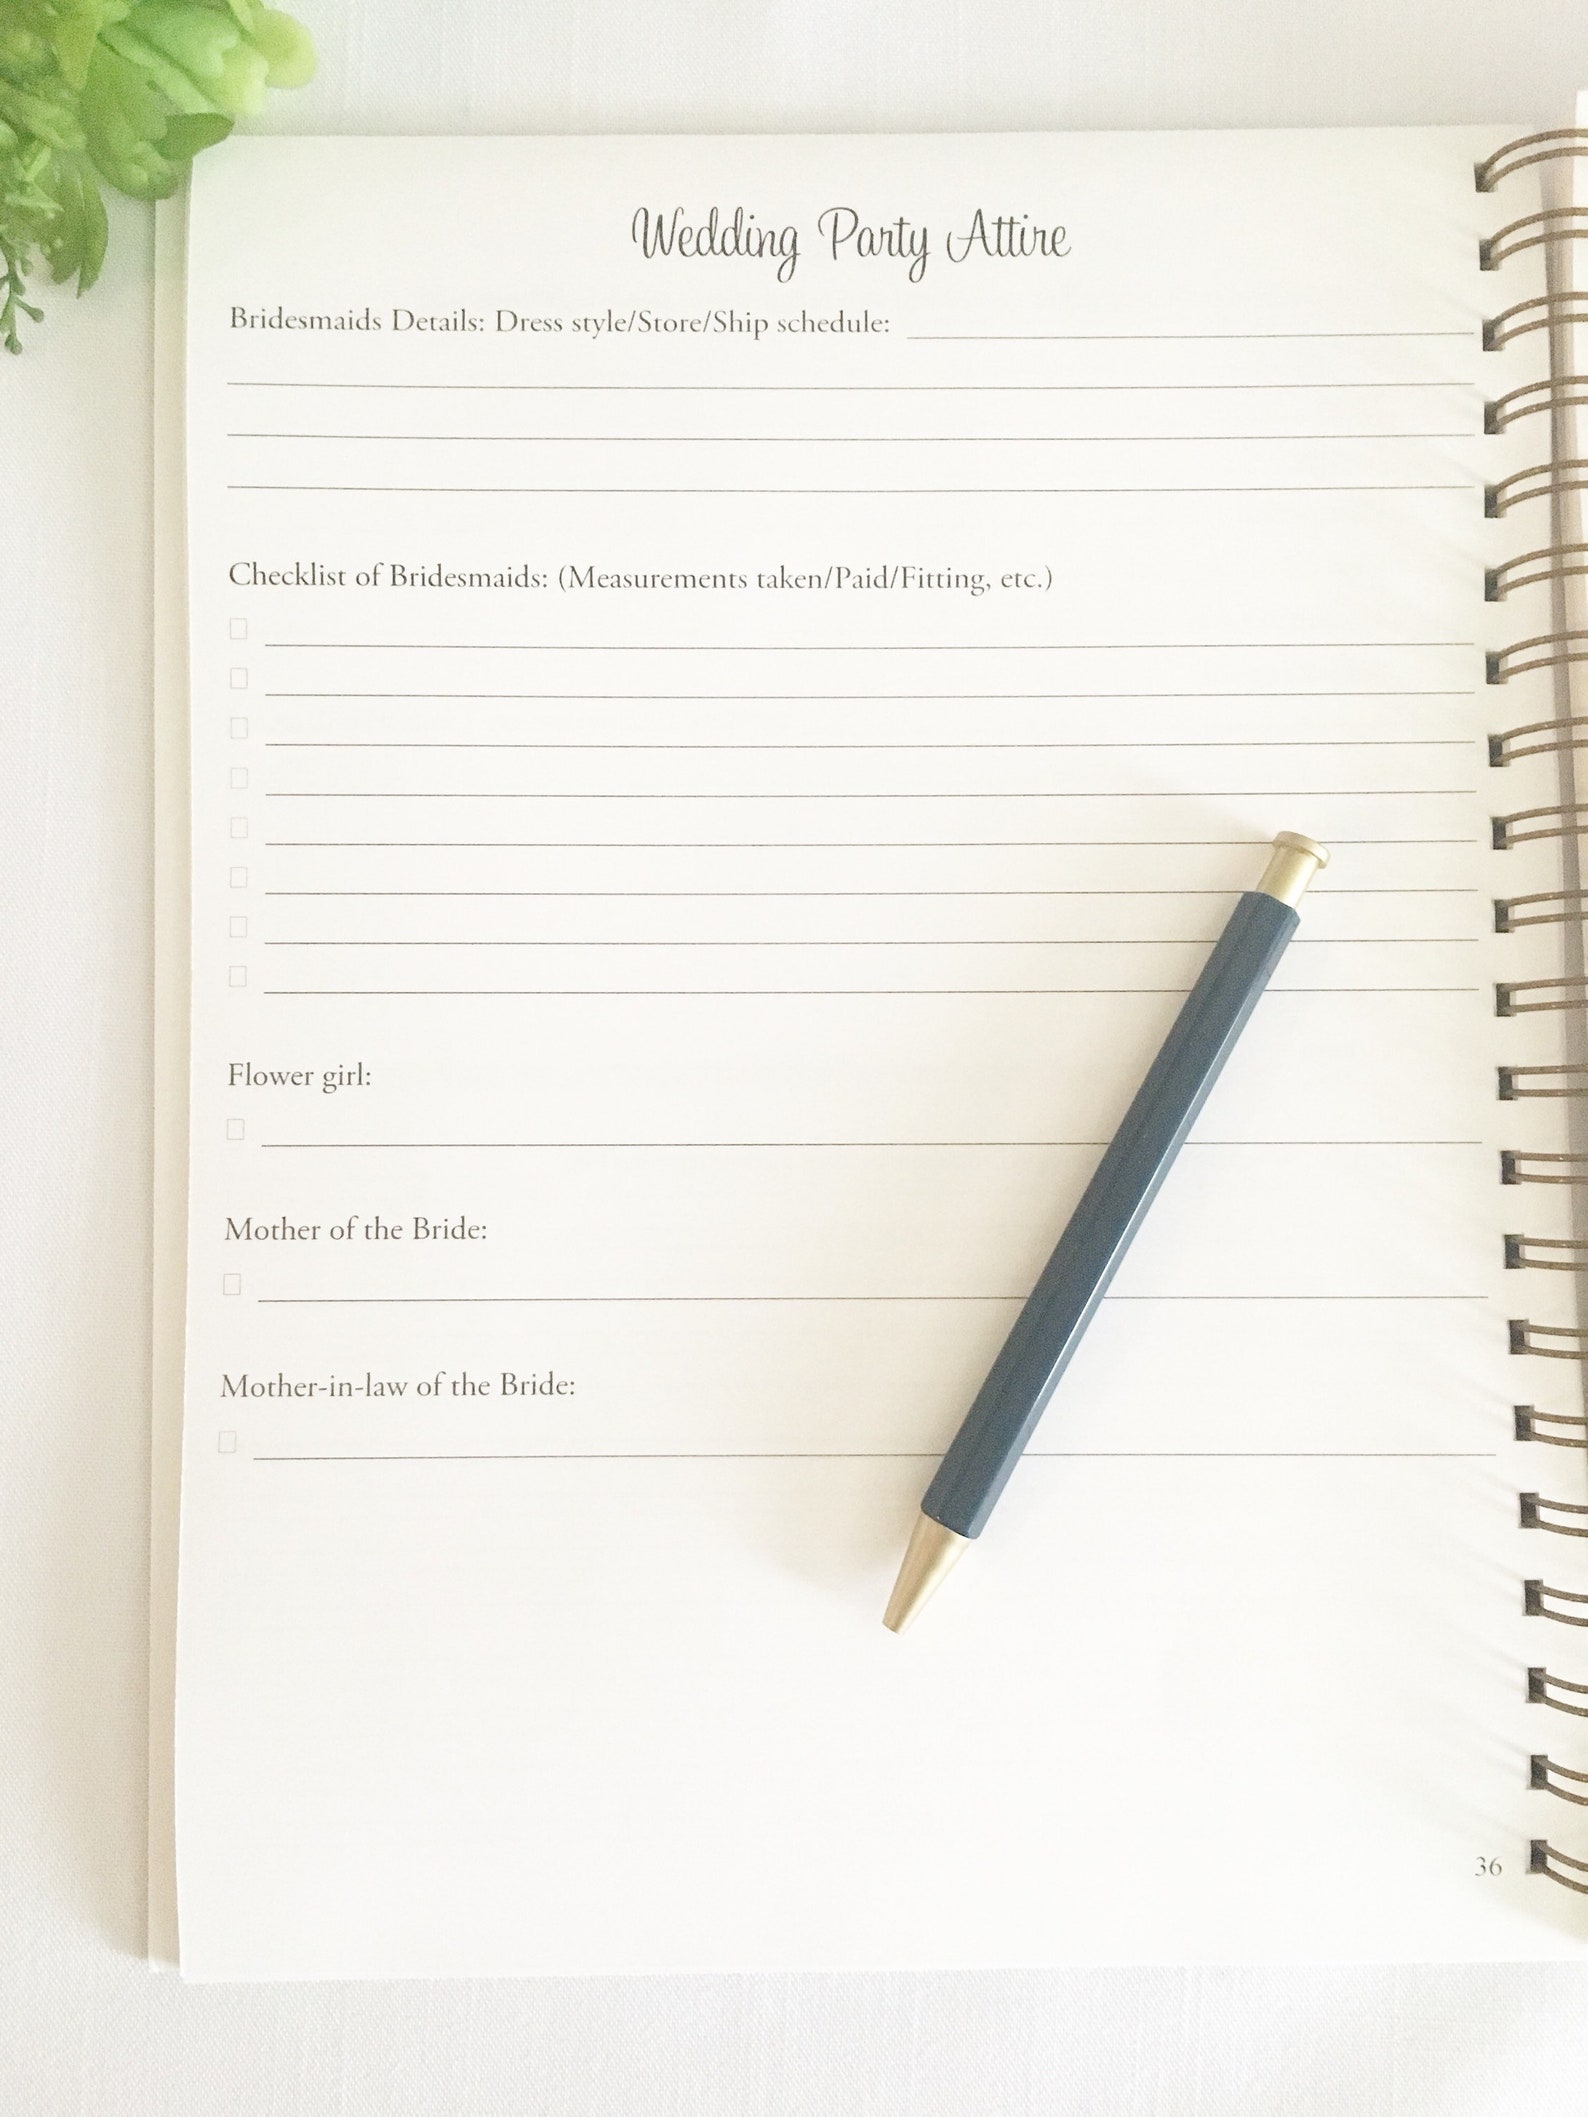 Wedding Party Attire
Bridesmaids Details: Dress style/Store/Ship schedule:
Checklist of Bridesmaids: (Measurements taken/Paid/Fitting, etc.)
Flower girl:
Mother of the Bride:
Mother-in-law of the Bride:
36